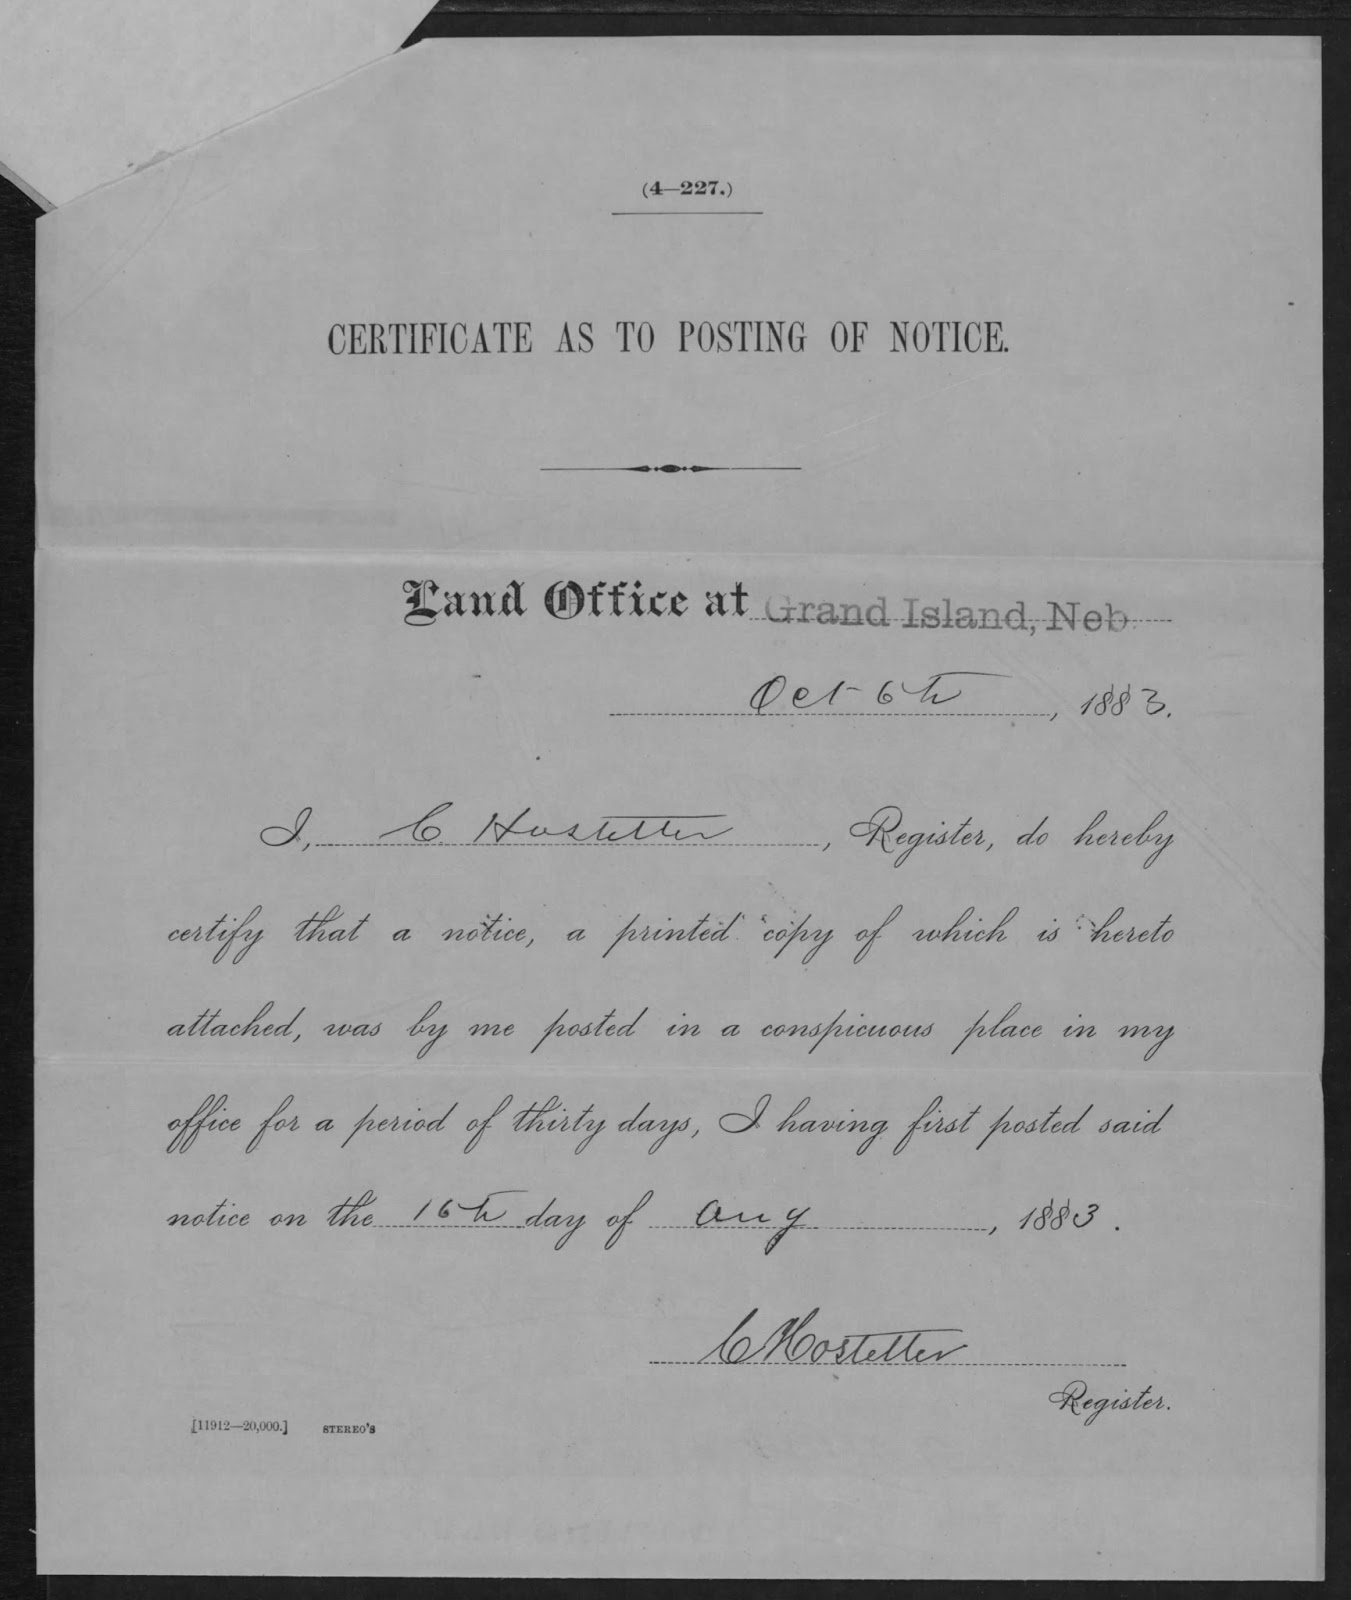 (4—227.)
CERTIFICATE AS TO POSTING OF NOTICE.
Land Office at Grand Island, Neb.
Oct 6th, 1883.
I, C. Hostetter, Register, do hereby
certify that a notice, a printed copy of which is hereto
attached, was by me posted in a conspicuous place in my
office for a period of thirty days, I having first posted said
notice on the 16th day of Aug, 1883.
C Hostetter
Register.
[11912—20,000.] STEREO'S